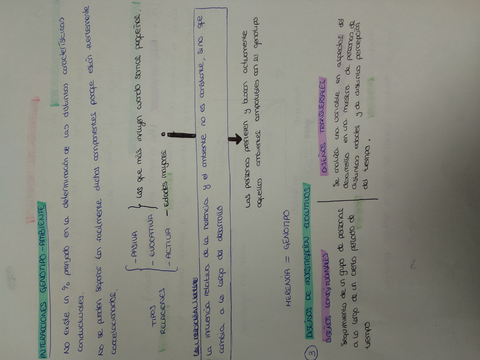 INTERACCIONES GENOTIPO-AMBIENTE
No existe un % prefijado en la determinación de las distintas características
conductuales.
No se pueden separar tan fácilmente dichos componentes porque están fuertemente
correlacionados.
TIPOS
RELACIONES
- PASIVA
- EVOCATIVA
} Las que más influyen cuando somos pequeños.
- ACTIVA → Edades mayores.
La influencia relativa de la herencia y el ambiente no es constante, sino que
cambia a lo largo del desarrollo
Las personas prefieren y buscan activamente
aquellos ambientes compatibles con el genotipo
HERENCIA = GENOTIPO
③ DISEÑOS DE INVESTIGACIÓN EVOLUTIVOS
DISEÑOS LONGITUDINALES
Seguimiento de un grupo de personas
a lo largo de un cierto periodo de
tiempo
DISEÑOS TRANSVERSALES
Se evalúa una variable en aspectos del
desarrollo en una muestra de personas de
distintas edades y de distinta percepción
del tiempo.